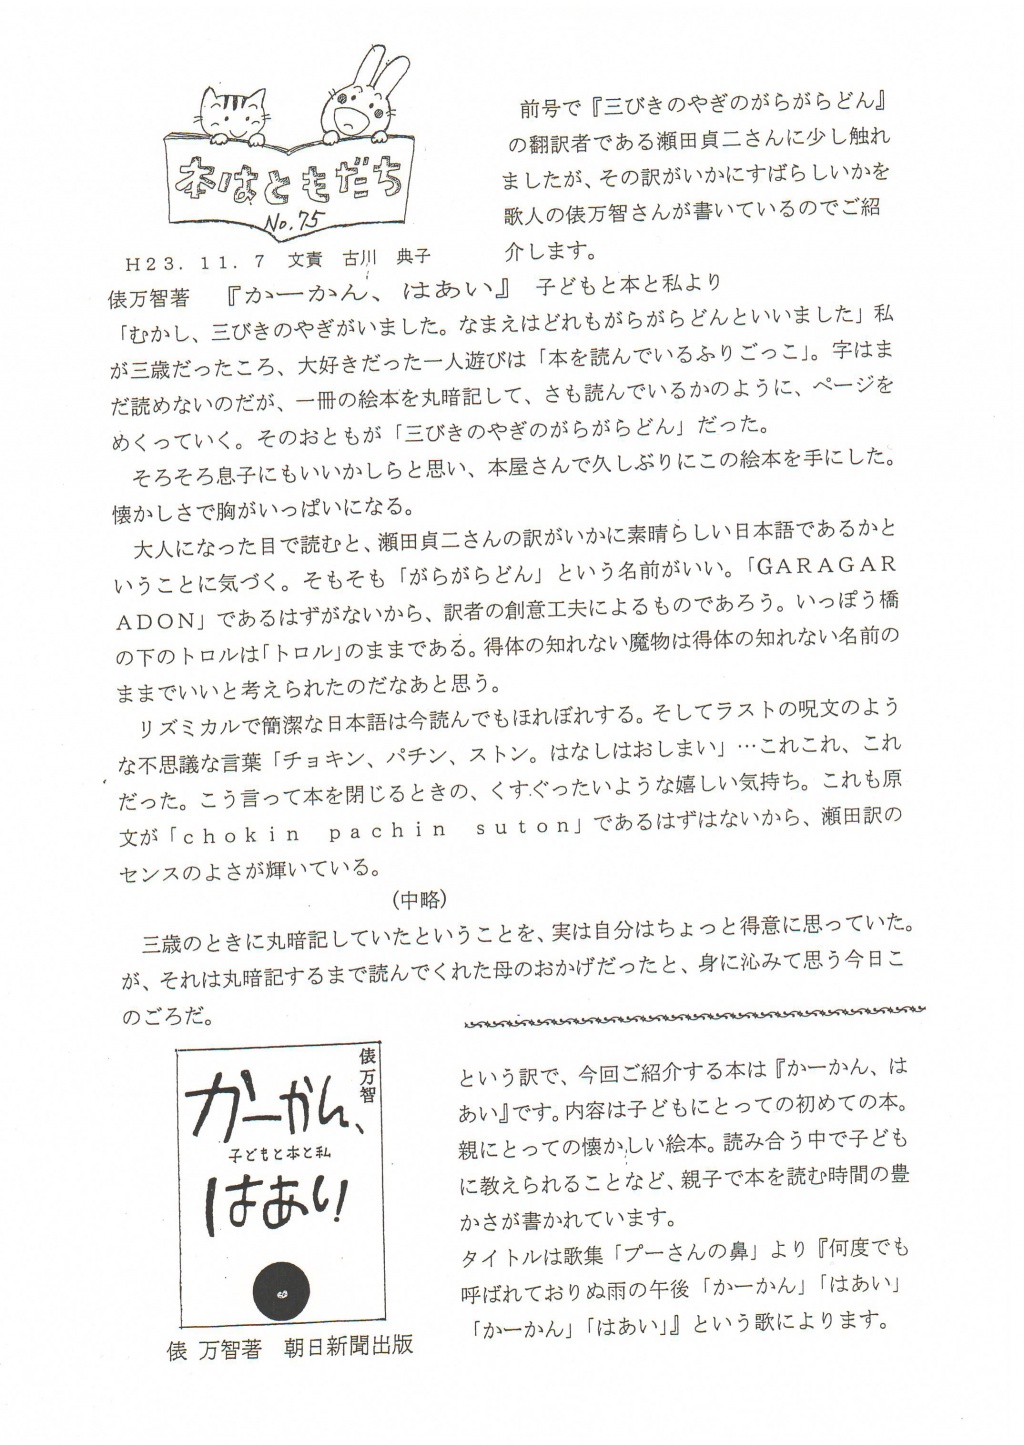 本はともだち
No.75
H23.11.7 文責 古川 典子
前号で『三びきのやぎのがらがらどん』
の翻訳者である瀬田貞二さんに少し触れ
ましたが、その訳がいかにすばらしいかを
歌人の俵万智さんが書いているのでご紹
介します。
俵万智著 『かーかん、はあい』 子どもと本と私より
「むかし、三びきのやぎがいました。なまえはどれもがらがらどんといいました」私
が三歳だったころ、大好きだった一人遊びは「本を読んでいるふりごっこ」。字はま
だ読めないのだが、一冊の絵本を丸暗記して、さも読んでいるかのように、ページを
めくっていく。そのおともが「三びきのやぎのがらがらどん」だった。
そろそろ息子にもいいかしらと思い、本屋さんで久しぶりにこの絵本を手にした。
懐かしさで胸がいっぱいになる。
大人になった目で読むと、瀬田貞二さんの訳がいかに素晴らしい日本語であるかと
いうことに気づく。そもそも「がらがらどん」という名前がいい。「GARAGAR
ADON」であるはずがないから、訳者の創意工夫によるものであろう。いっぽう橋
の下のトロルは「トロル」のままである。得体の知れない魔物は得体の知れない名前の
ままでいいと考えられたのだなあと思う。
リズミカルで簡潔な日本語は今読んでもほれぼれする。そしてラストの呪文のよう
な不思議な言葉「チョキン、パチン、ストン。はなしはおしまい」…これこれ、これ
だった。こう言って本を閉じるときの、くすぐったいような嬉しい気持ち。これも原
文が「chokin pachin suton」であるはずはないから、瀬田訳の
センスのよさが輝いている。
(中略)
三歳のときに丸暗記していたということを、実は自分はちょっと得意に思っていた。
が、それは丸暗記するまで読んでくれた母のおかげだったと、身に沁みて思う今日こ
のごろだ。
俵万智
かーかん、
子どもと本と私
はあい!
俵 万智著 朝日新聞出版
という訳で、今回ご紹介する本は『かーかん、は
あい』です。内容は子どもにとっての初めての本。
親にとっての懐かしい絵本。読み合う中で子ども
に教えられることなど、親子で本を読む時間の豊
かさが書かれています。
タイトルは歌集「プーさんの鼻」より『何度でも
呼ばれておりぬ雨の午後「かーかん」「はあい」
「かーかん」「はあい」』という歌によります。